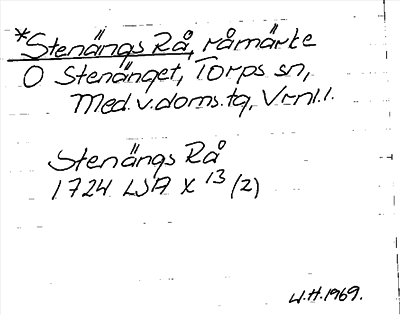 *Stenängs Rå, råmärke
O Stenänget, Torps sn,
Med. v. doms. tg, Vrml. l.
Stenängs Rå
1724 LSA X 13 (2)
W.H. 1969.